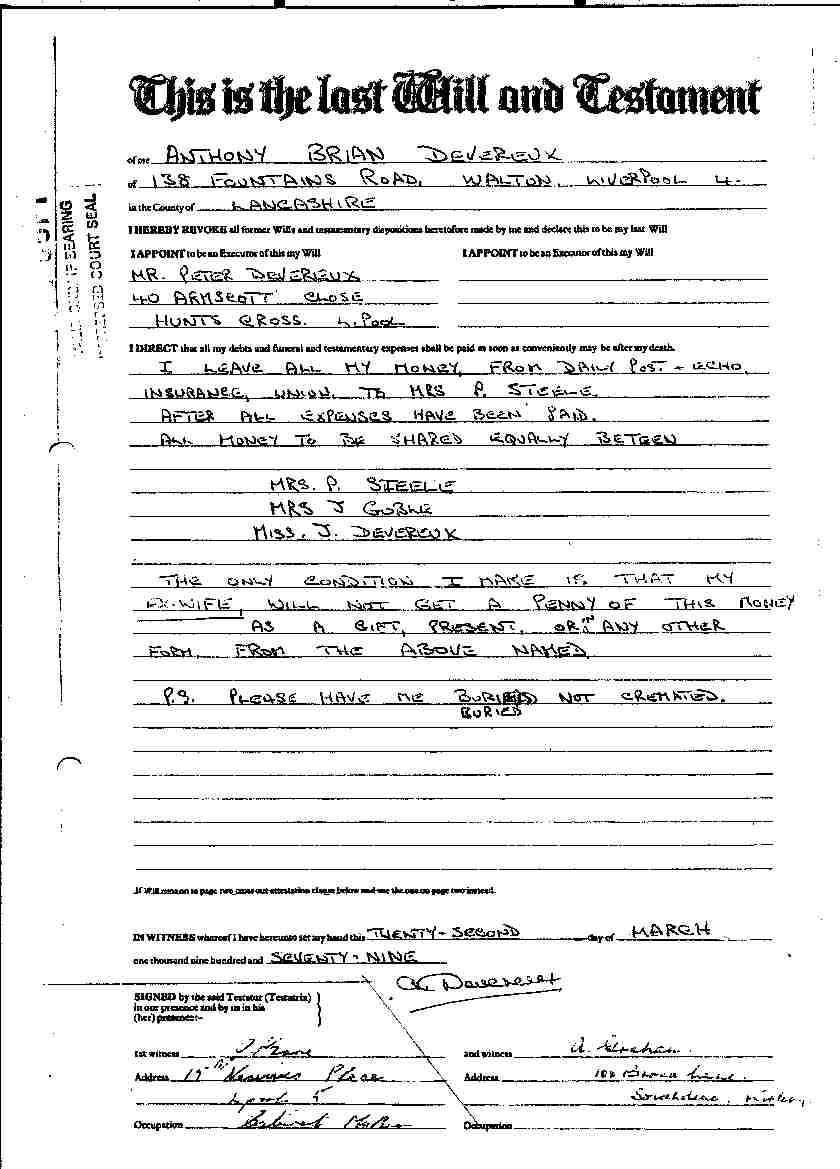 This is the last Will and Testament
of me ANTHONY BRIAN DEVEREUX
of 138 FOUNTAINS ROAD, WALTON, LIVERPOOL 4.
in the County of LANCASHIRE
I HEREBY REVOKE all former Wills and testamentary dispositions heretofore made by me and declare this to be my last Will
I APPOINT to be an Executor of this my Will
I APPOINT to be an Executor of this my Will
MR. PETER DEVERIEUX
40 ARMSCOTT CLOSE
HUNTS CROSS. L.POOL
I DIRECT that all my debts and funeral and testamentary expenses shall be paid as soon as conveniently may be after my death.
I LEAVE ALL MY MONEY, FROM DAILY POST - ECHO,
INSURANCE, UNION, TO MRS P. STEELE.
AFTER ALL EXPENSES HAVE BEEN PAID.
ALL MONEY TO BE SHARED EQUALLY BETEEN
MRS. P. STEELE
MRS J GOBLE
MISS. J. DEVEREUX
THE ONLY CONDITION I MAKE IS THAT MY
EX-WIFE, WILL NOT GET A PENNY OF THIS MONEY
AS A GIFT, PRESENT, OR IN ANY OTHER
FORM, FROM THE ABOVE NAMED
P.S. PLEASE HAVE ME BURIED NOT CREMATED.
BURIED
If Will runs on to page two cross out attestation clause below and use the one on page two instead.
IN WITNESS whereof I have hereunto set my hand this TWENTY-SECOND day of MARCH
one thousand nine hundred and SEVENTY-NINE
SIGNED by the said Testator (Testatrix)
in our presence and by us in his
(her) presence:-
1st witness
2nd witness A. Graham.
Address 17 Place
Address 100
L'pool 5
Occupation Cabinet Maker
Occupation
BEARING
COURT SEAL